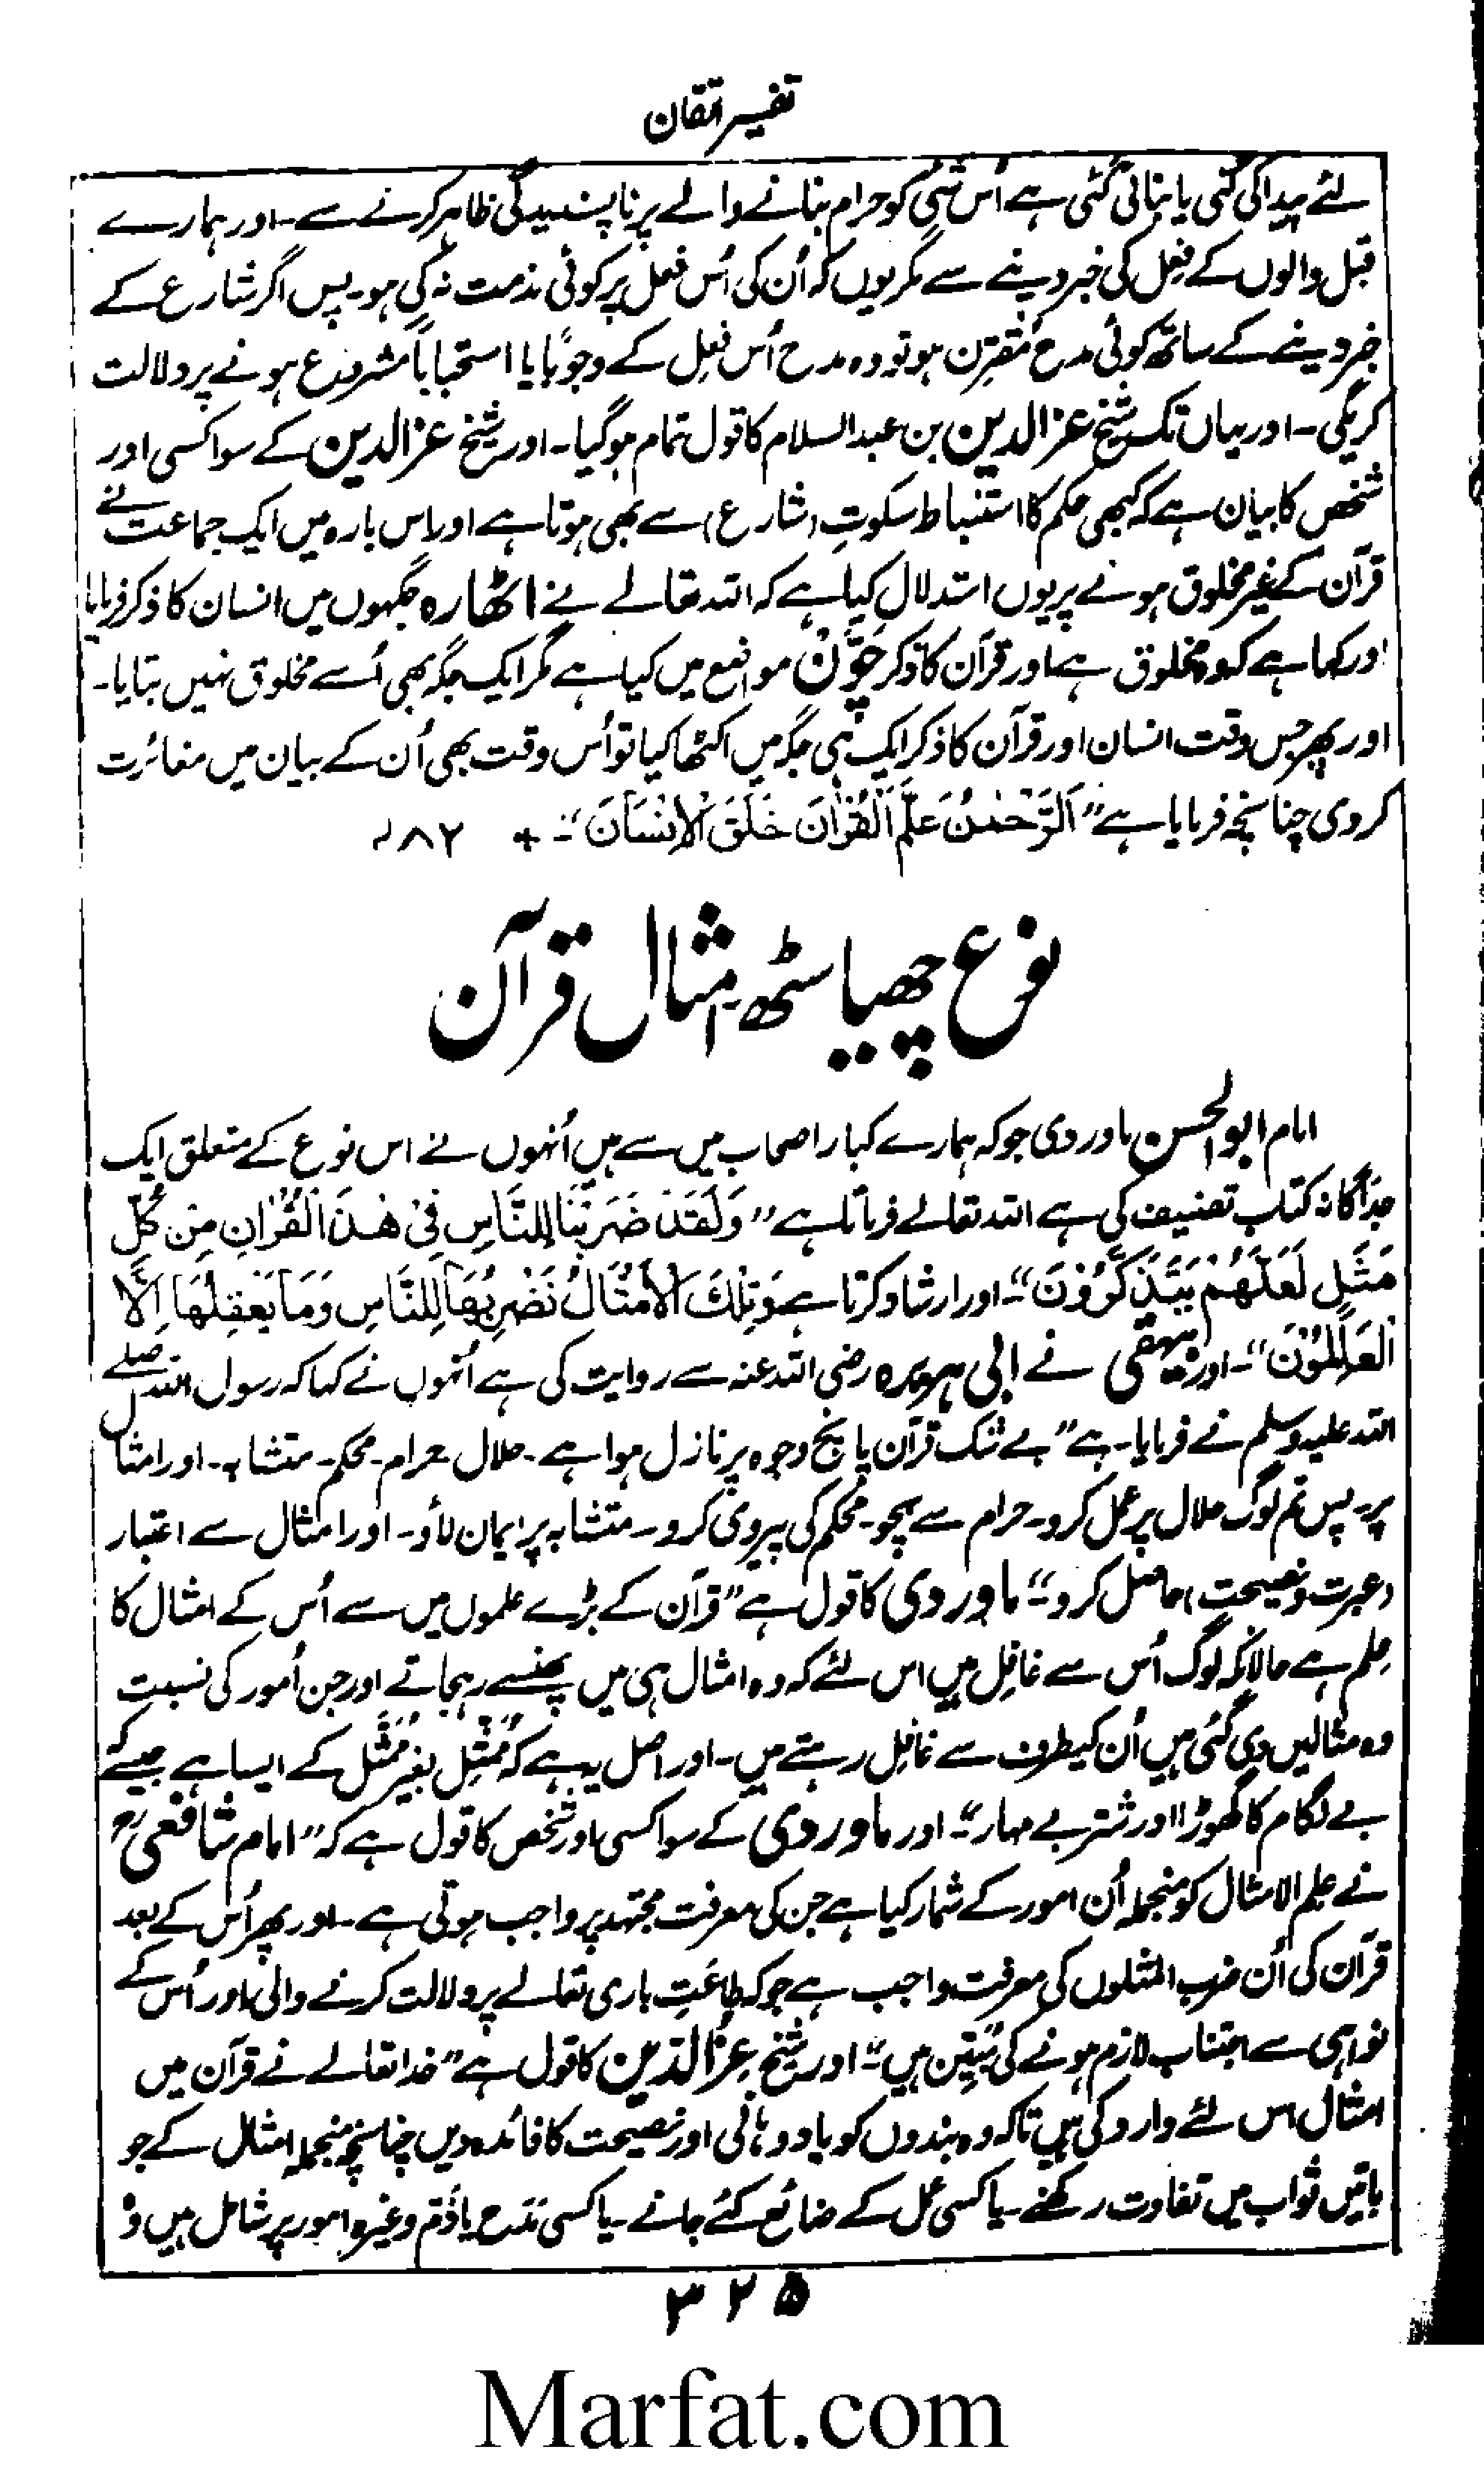 تفسیر اتقان
لئے پیدا کی گئی یا بنائی گئی ہے اُس شَئی کو حرام بنانے والے پر ناپسندیدگی ظاہر کرنے سے۔ اور ہمارے
قبل والوں کے فعِل کی خبر دینے سے مگر یوں کہ اُن کی اُس فعل پر کوئی مذمت نہ کی ہو۔ پس اگر شارع کے
خبر دینے کے ساتھ کوئی مدح مُقترِن ہو تو وہ مدح اُس فعِل کے وجوبًا یا استحباباً مشروع ہونے پر دلالت
کریگی۔ اور یہاں تک شیخ عزالدین بن عبدالسلام کا قول تمام ہوگیا۔ اور شیخ عزالدین کے سوا کسی اور
شخص کا بیان ہے کہ کبھی حکم کا استنباط سکوتِ (شارع) سے بھی ہوتا ہے اور اس بارہ میں ایک جماعت نے
قرآن کے غیر مخلوق ہونے پر یوں استدلال کیا ہے کہ اللہ تعالےٰ نے اٹھارہ جگہوں میں انسان کا ذکر فرمایا
اور کہا ہے کہ وہ مخلوق ہے اور قرآن کا ذکر چَوَّنْ مواضع میں کیا ہے مگر ایک جگہ بھی اُسے مخلوق نہیں بتایا۔
اور پھر جس وقت انسان اور قرآن کا ذکر ایک ہی جگہ میں اکٹھا کیا تو اُس وقت بھی اُن کے بیان میں مغائرت
کردی چنانچہ فرمایا ہے ”اَلرَّحْمٰنُ عَلَّمَ الْقُرْاٰنَ خَلَقَ الْاِنْسَانَ“۔ + ۸۲
نوع چھیاسٹھ۔ امثال قرآن
امام ابوالحسن ماوردی جو کہ ہمارے کبار اصحاب میں سے ہیں اُنہوں نے اس نوع کے متعلق ایک
جداگانہ کتاب تصنیف کی ہے اللہ تعالےٰ فرماتا ہے ”وَلَقَدْ ضَرَبْنَا لِلنَّاسِ فِیْ هٰذَا الْقُرْاٰنِ مِنْ كُلِّ
مَثَلٍ لَعَلَّهُمْ يَتَذَكَّرُوْنَ“۔ اور ارشاد کرتا ہے وَتِلْكَ الْاَمْثَالُ نَضْرِبُهَا لِلنَّاسِ وَمَا يَعْقِلُهَا اِلَّا
الْعَالِمُوْنَ“۔ اور بیہقی نے ابی ہریرہ رضی اللہ عنہ سے روایت کی ہے اُنہوں نے کہا کہ رسول اللہ صلے
اللہ علیہ وسلم نے فرمایا۔ ہے ”بے شک قرآن پانچ وجوہ پر نازل ہوا ہے۔ حلال۔ حرام۔ محکم۔ متشابہ۔ اور امثال
پر۔ پس تم لوگ حلال پر عمل کرو۔ حرام سے بچو۔ محکم کی پیروی کرو۔ متشابہ پر ایمان لاؤ۔ اور امثال سے اعتبار
(عبرت و نصیحت) حاصل کرو“ ماوردی کا قول ہے ”قرآن کے بڑے علموں میں سے اُس کے امثال کا
عِلم ہے حالانکہ لوگ اُس سے غافِل ہیں اس لئے کہ وہ امثال ہی میں پھنسے رہجاتے اور جن اُمور کی نسبت
وہ مثالیں دی گئی ہیں اُن کیطرف سے غافِل رہتے ہیں۔ اور اصل یہ ہے کہ مُمَثَّل بغیر مُمَثِّل کے ایسا ہے جیسے کہ
بے لگام کا گھوڑا اور شتر بے مہار“۔ اور ماوردی کے سوا کسی اور شخص کا قول ہے کہ ”امام شافعیؒ
نے علم الامثال کو منجملہ اُن امور کے شمار کیا ہے جن کی معرفت مجتہد پر واجب ہوتی ہے۔ اور پھر اُس کے بعد
قرآن کی اُن ضرب المثلوں کی معرفت واجب ہے جو کہ طاعَتِ باری تعالےٰ پر دلالت کرنے والی اور اُس کے
نواہی سے اجتناب لازم ہونے کی مُبیِّن ہیں“۔ اور شیخ عِزُّالدّین کا قول ہے ”خدا تعالےٰ نے قرآن میں
امثال اس لئے وارد کی ہیں تاکہ وہ بندوں کو یاد دہانی اور نصیحت کا فائدہ دیں چنانچہ منجملہ امثال کے جو
باتیں ثواب میں تفاوت رکھنے۔ یا کسی عمل کے ضائع کئے جانے۔ یا کسی مَدَح یا ذَم وغیرہ امور پر شامل ہیں وُہ
۳۲۵
Marfat.com